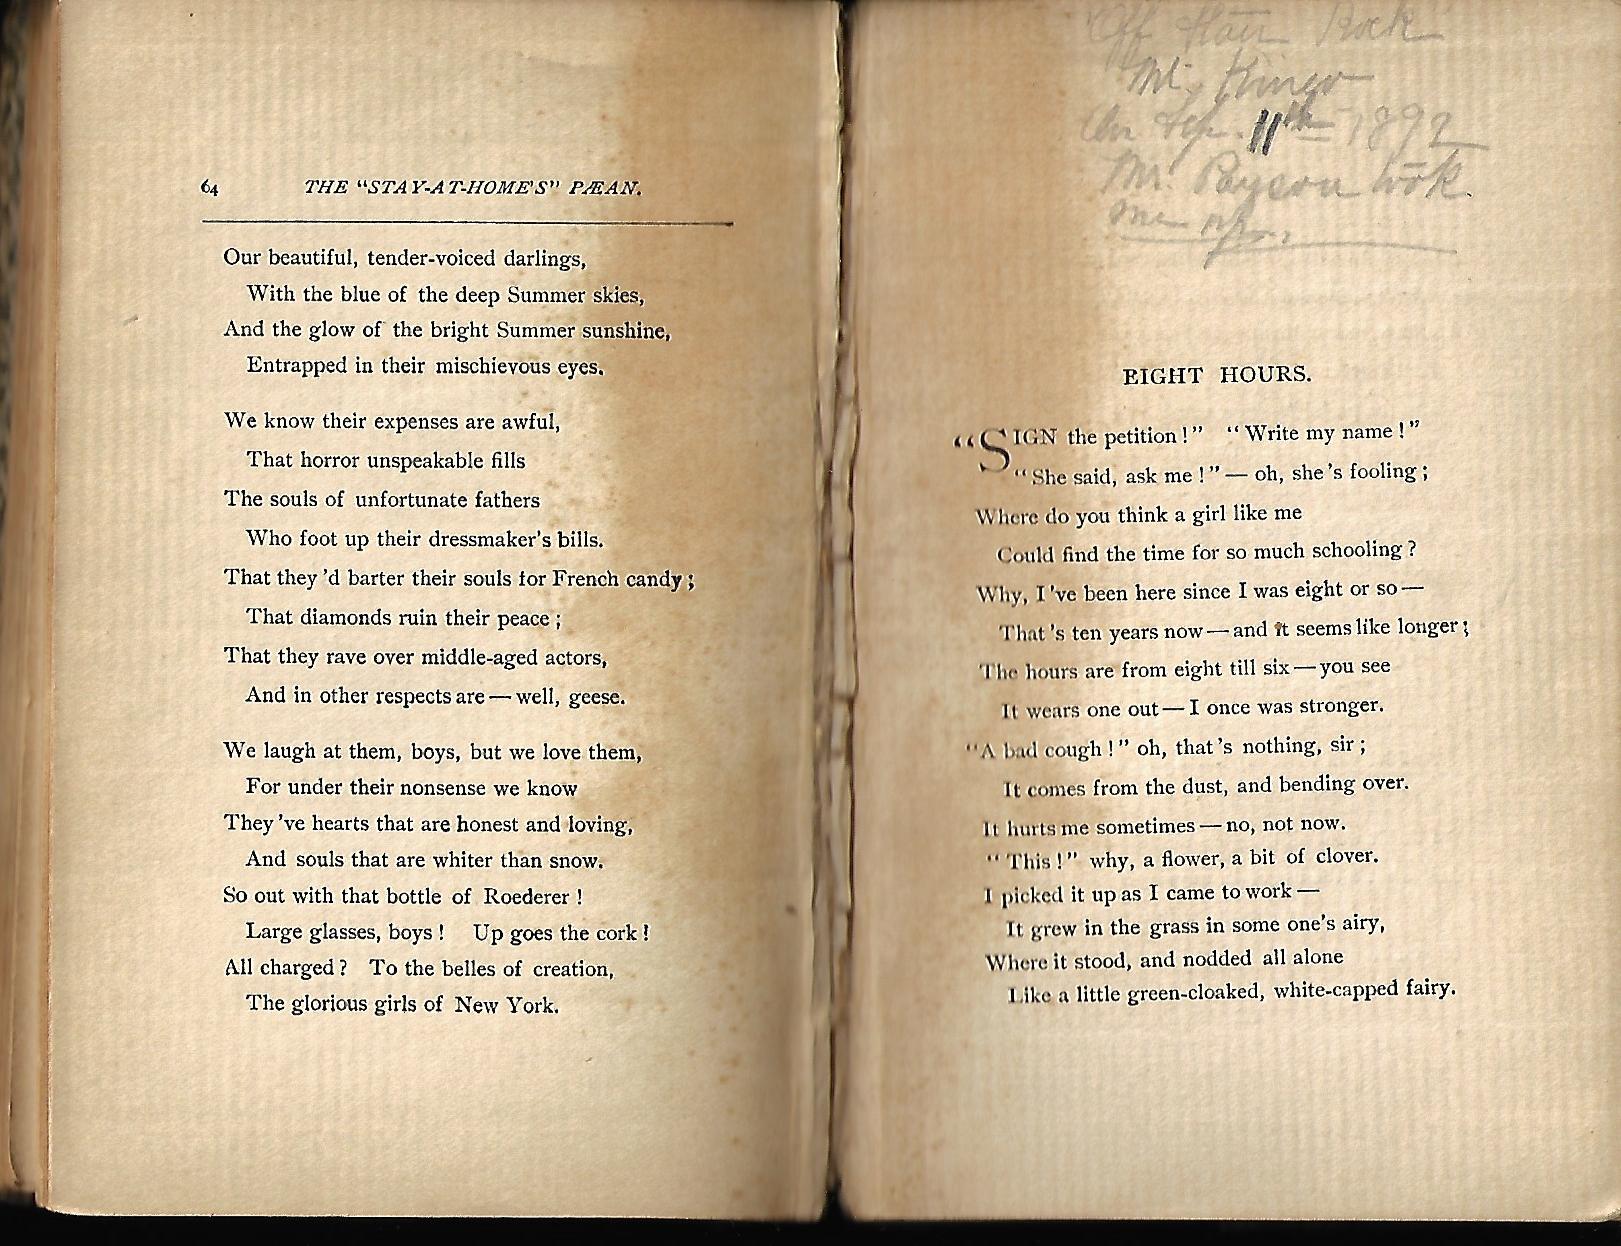 64 THE "STAY-AT-HOME'S" PÆAN.
Our beautiful, tender-voiced darlings,
With the blue of the deep Summer skies,
And the glow of the bright Summer sunshine,
Entrapped in their mischievous eyes.
We know their expenses are awful,
That horror unspeakable fills
The souls of unfortunate fathers
Who foot up their dressmaker's bills.
That they'd barter their souls for French candy;
That diamonds ruin their peace;
That they rave over middle-aged actors,
And in other respects are—well, geese.
We laugh at them, boys, but we love them,
For under their nonsense we know
They've hearts that are honest and loving,
And souls that are whiter than snow.
So out with that bottle of Roederer!
Large glasses, boys! Up goes the cork!
All charged? To the belles of creation,
The glorious girls of New York.
Off Rock
Mr.
On Sep. 11th 1892
Mr. Payson took
me up.
EIGHT HOURS.
"SIGN the petition!" "Write my name!"
"She said, ask me!"—oh, she's fooling;
Where do you think a girl like me
Could find the time for so much schooling?
Why, I've been here since I was eight or so—
That's ten years now—and it seems like longer;
The hours are from eight till six—you see
It wears one out—I once was stronger.
"A bad cough!" oh, that's nothing, sir;
It comes from the dust, and bending over.
It hurts me sometimes—no, not now.
"This!" why, a flower, a bit of clover.
I picked it up as I came to work—
It grew in the grass in some one's airy,
Where it stood, and nodded all alone
Like a little green-cloaked, white-capped fairy.